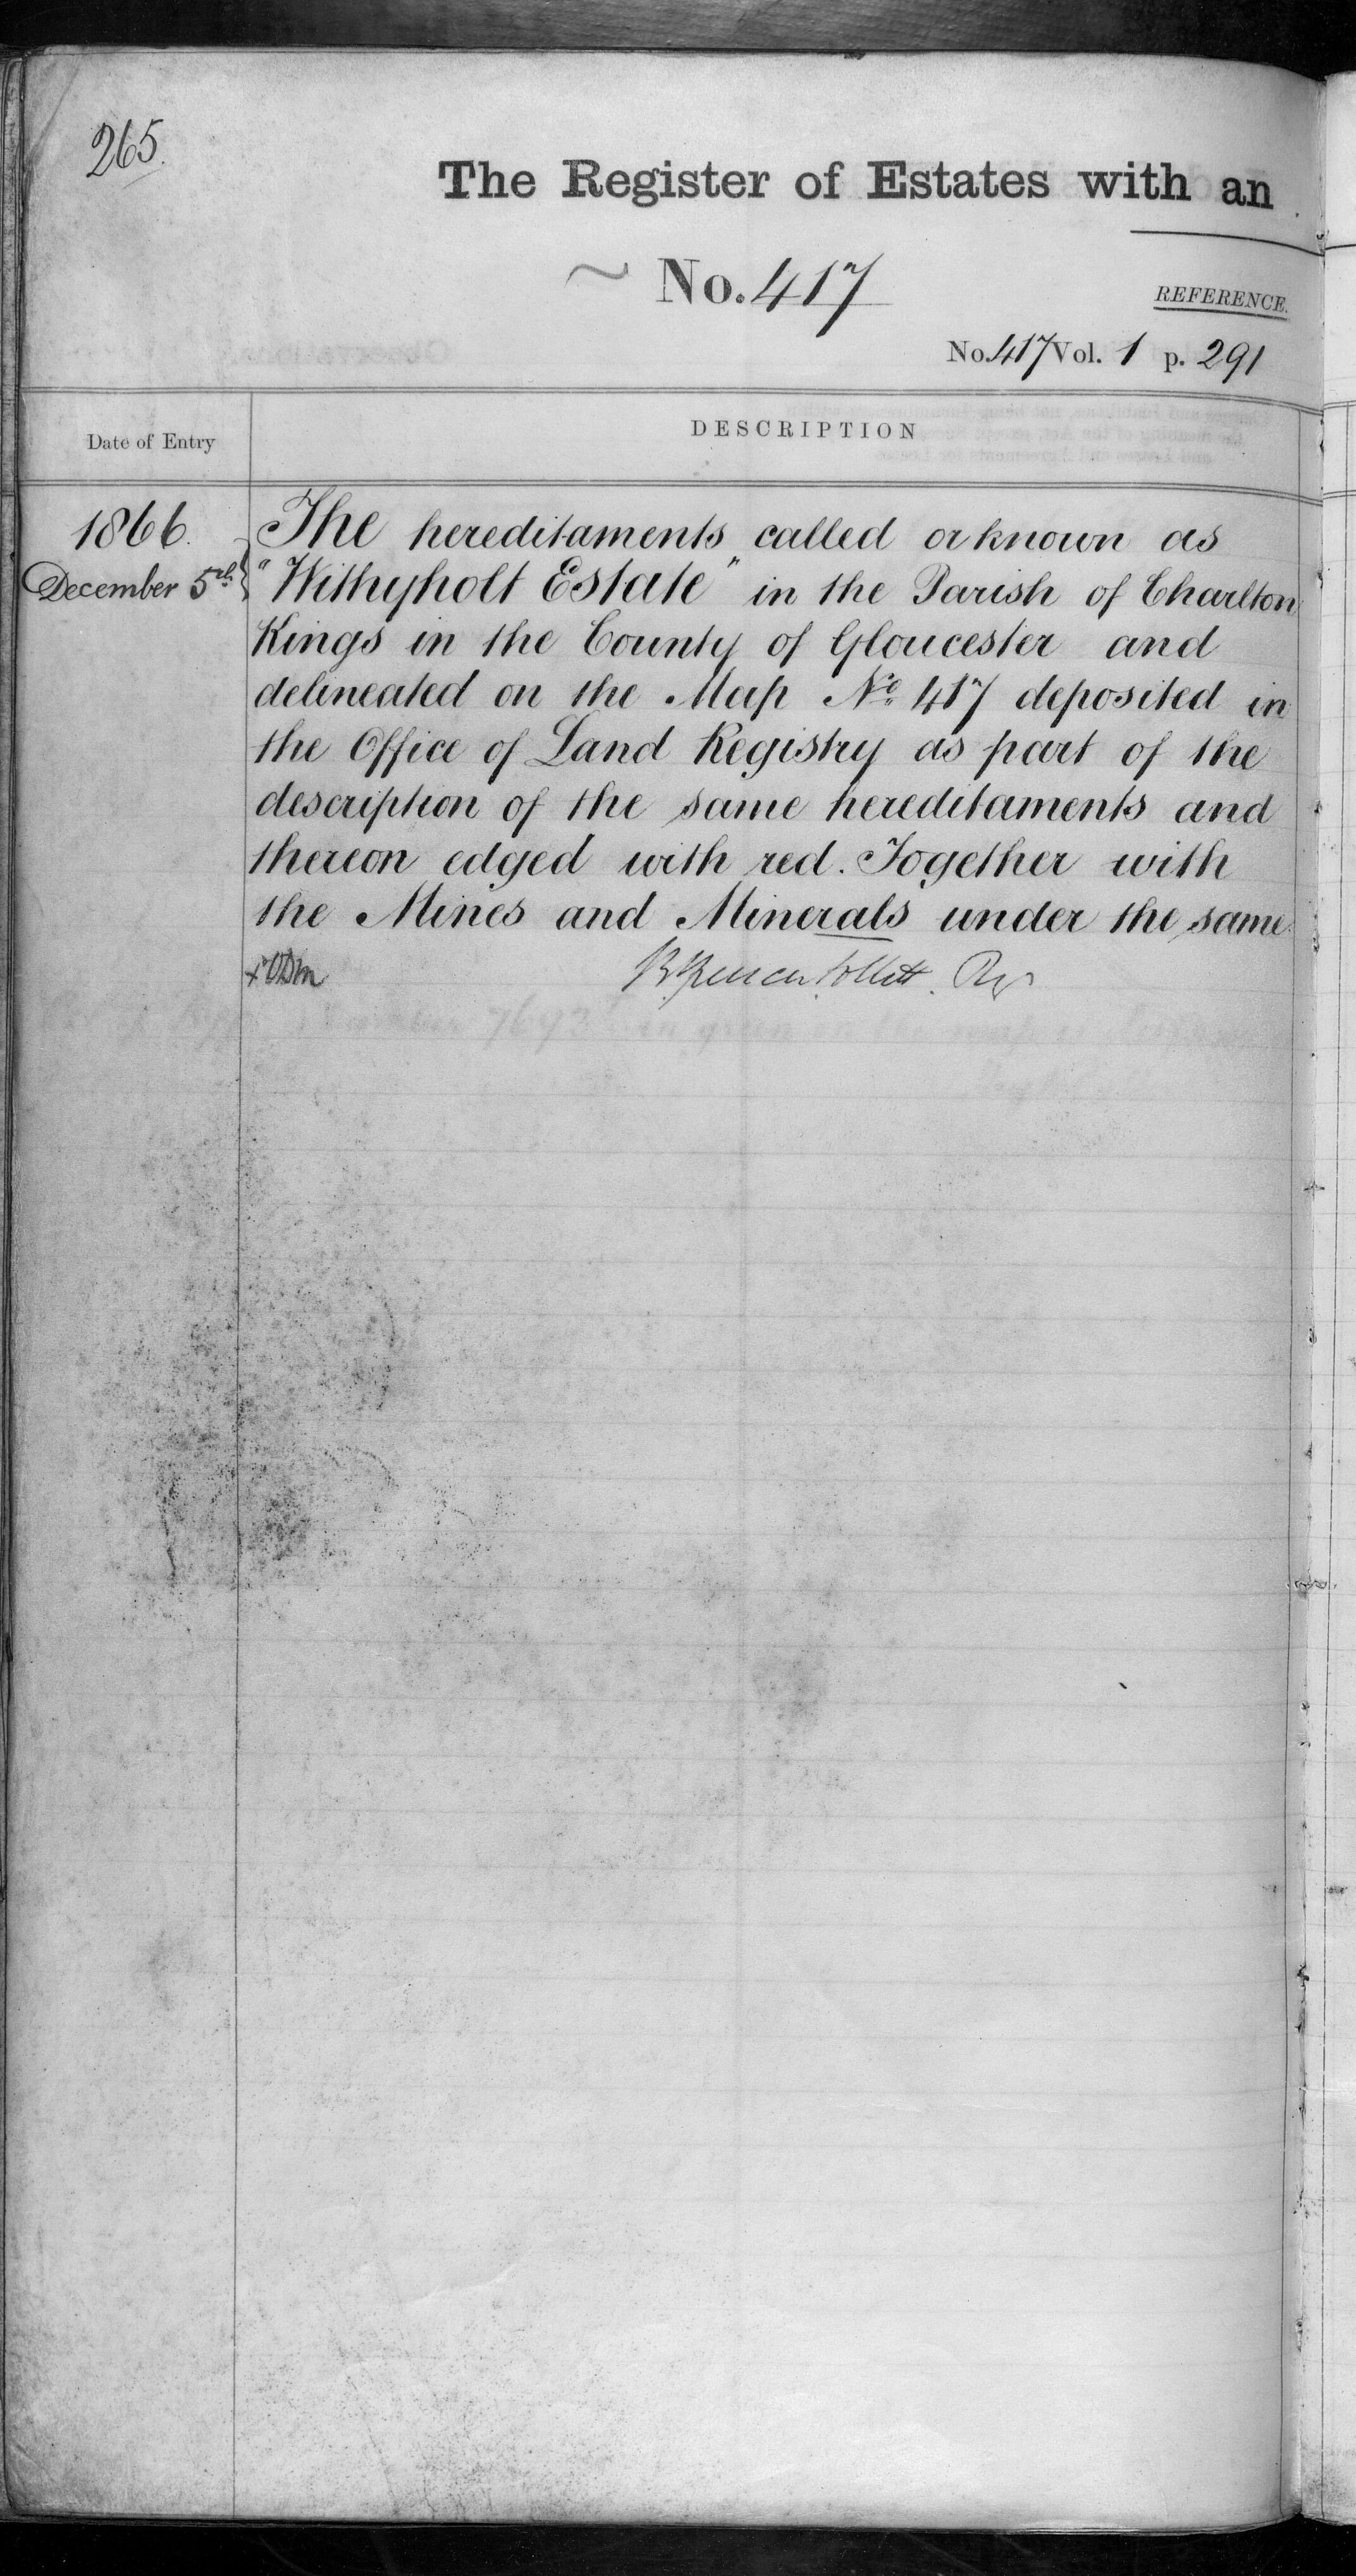 265.
The Register of Estates with an
No. 417
REFERENCE.
No. 417 Vol. 1 p. 291
Date of Entry
DESCRIPTION
1866.
December 5th
The hereditaments called or known as
"Withyholt Estate" in the Parish of Charlton
Kings in the County of Gloucester and
delineated on the Map No. 417 deposited in
the Office of Land Registry as part of the
description of the same hereditaments and
thereon edged with red. Together with
the Mines and Minerals under the same.
Follett. Regr